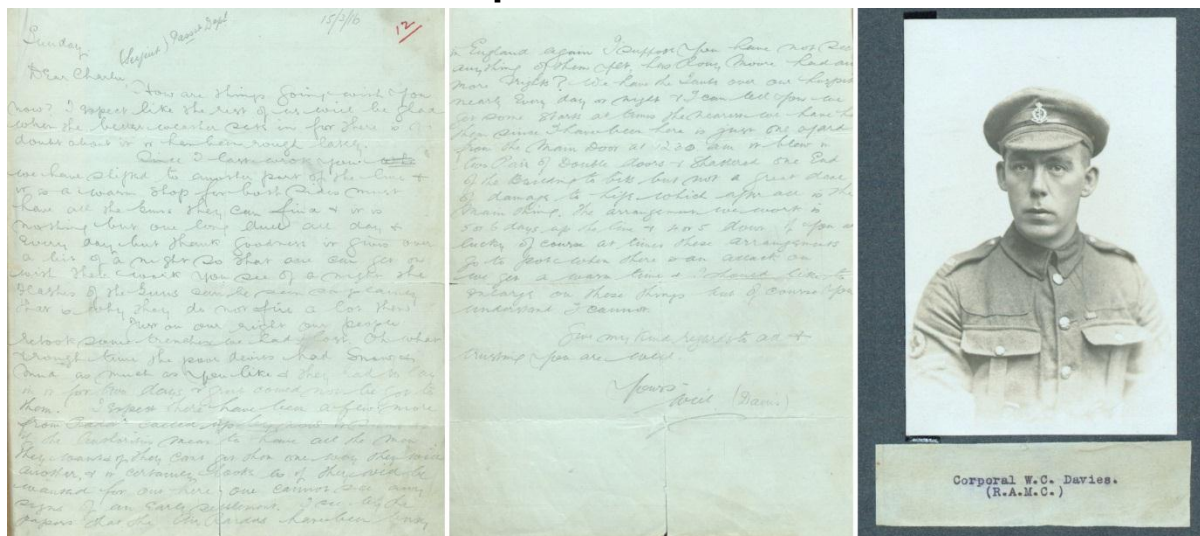 15/2/16
12
Sunday
(Sergent) Passed Dept
Dear Charlie,
How are things going with you
now? I expect like the rest of us will be glad
when the better weather sets in for there is no
doubt about it it has been rough lately.
Since I last wrote you
we have shifted to another part of the line &
it is a warm shop for both sides must
have all the Guns they can find & it is
nothing but one long duel all day &
every day but thank goodness it gives over
a bit of a night so that one can get on
with their work you see of a night the
flashes of the Guns can be seen so plainly
that is why they do not fire a lot then
Just on our right our people
retook some trenches we had lost. Oh what
rough time the poor devils had Snow &
mud as much as you like & they had to
it for two days & food could not be got to
them. I expect there have been a few more
from called up
the authorities mean to have all the men
they want if they can't get them one way they will
another, & it certainly looks as if they will be
wanted for out here one cannot see any
signs of an early settlement. I see by the
papers that the have been busy
England again I suppose you have not seen
anything of them yet
more Nights? We have the over our hospital
nearly every day or night & I can tell you we
get some starts at times the nearest we have had
them since I have been here is just one yard
from the Main Door at 12.30 am it blew in
two Pair of Double doors & Shattered one End
of the Building to bits but not a great deal
of damage to life which after all is the
main thing. The arrangement we work is
5 or 6 days up the line & 4 or 5 down if you are
lucky of course at times these arrangements
go to pot when there is an attack on
we get a warm time & I should like to
enlarge on these things but of course you
understand I cannot.
Give my kind regards to all &
trusting you are well
Yours
Will (Davis)
Corporal W.C. Davies.
(R.A.M.C.)